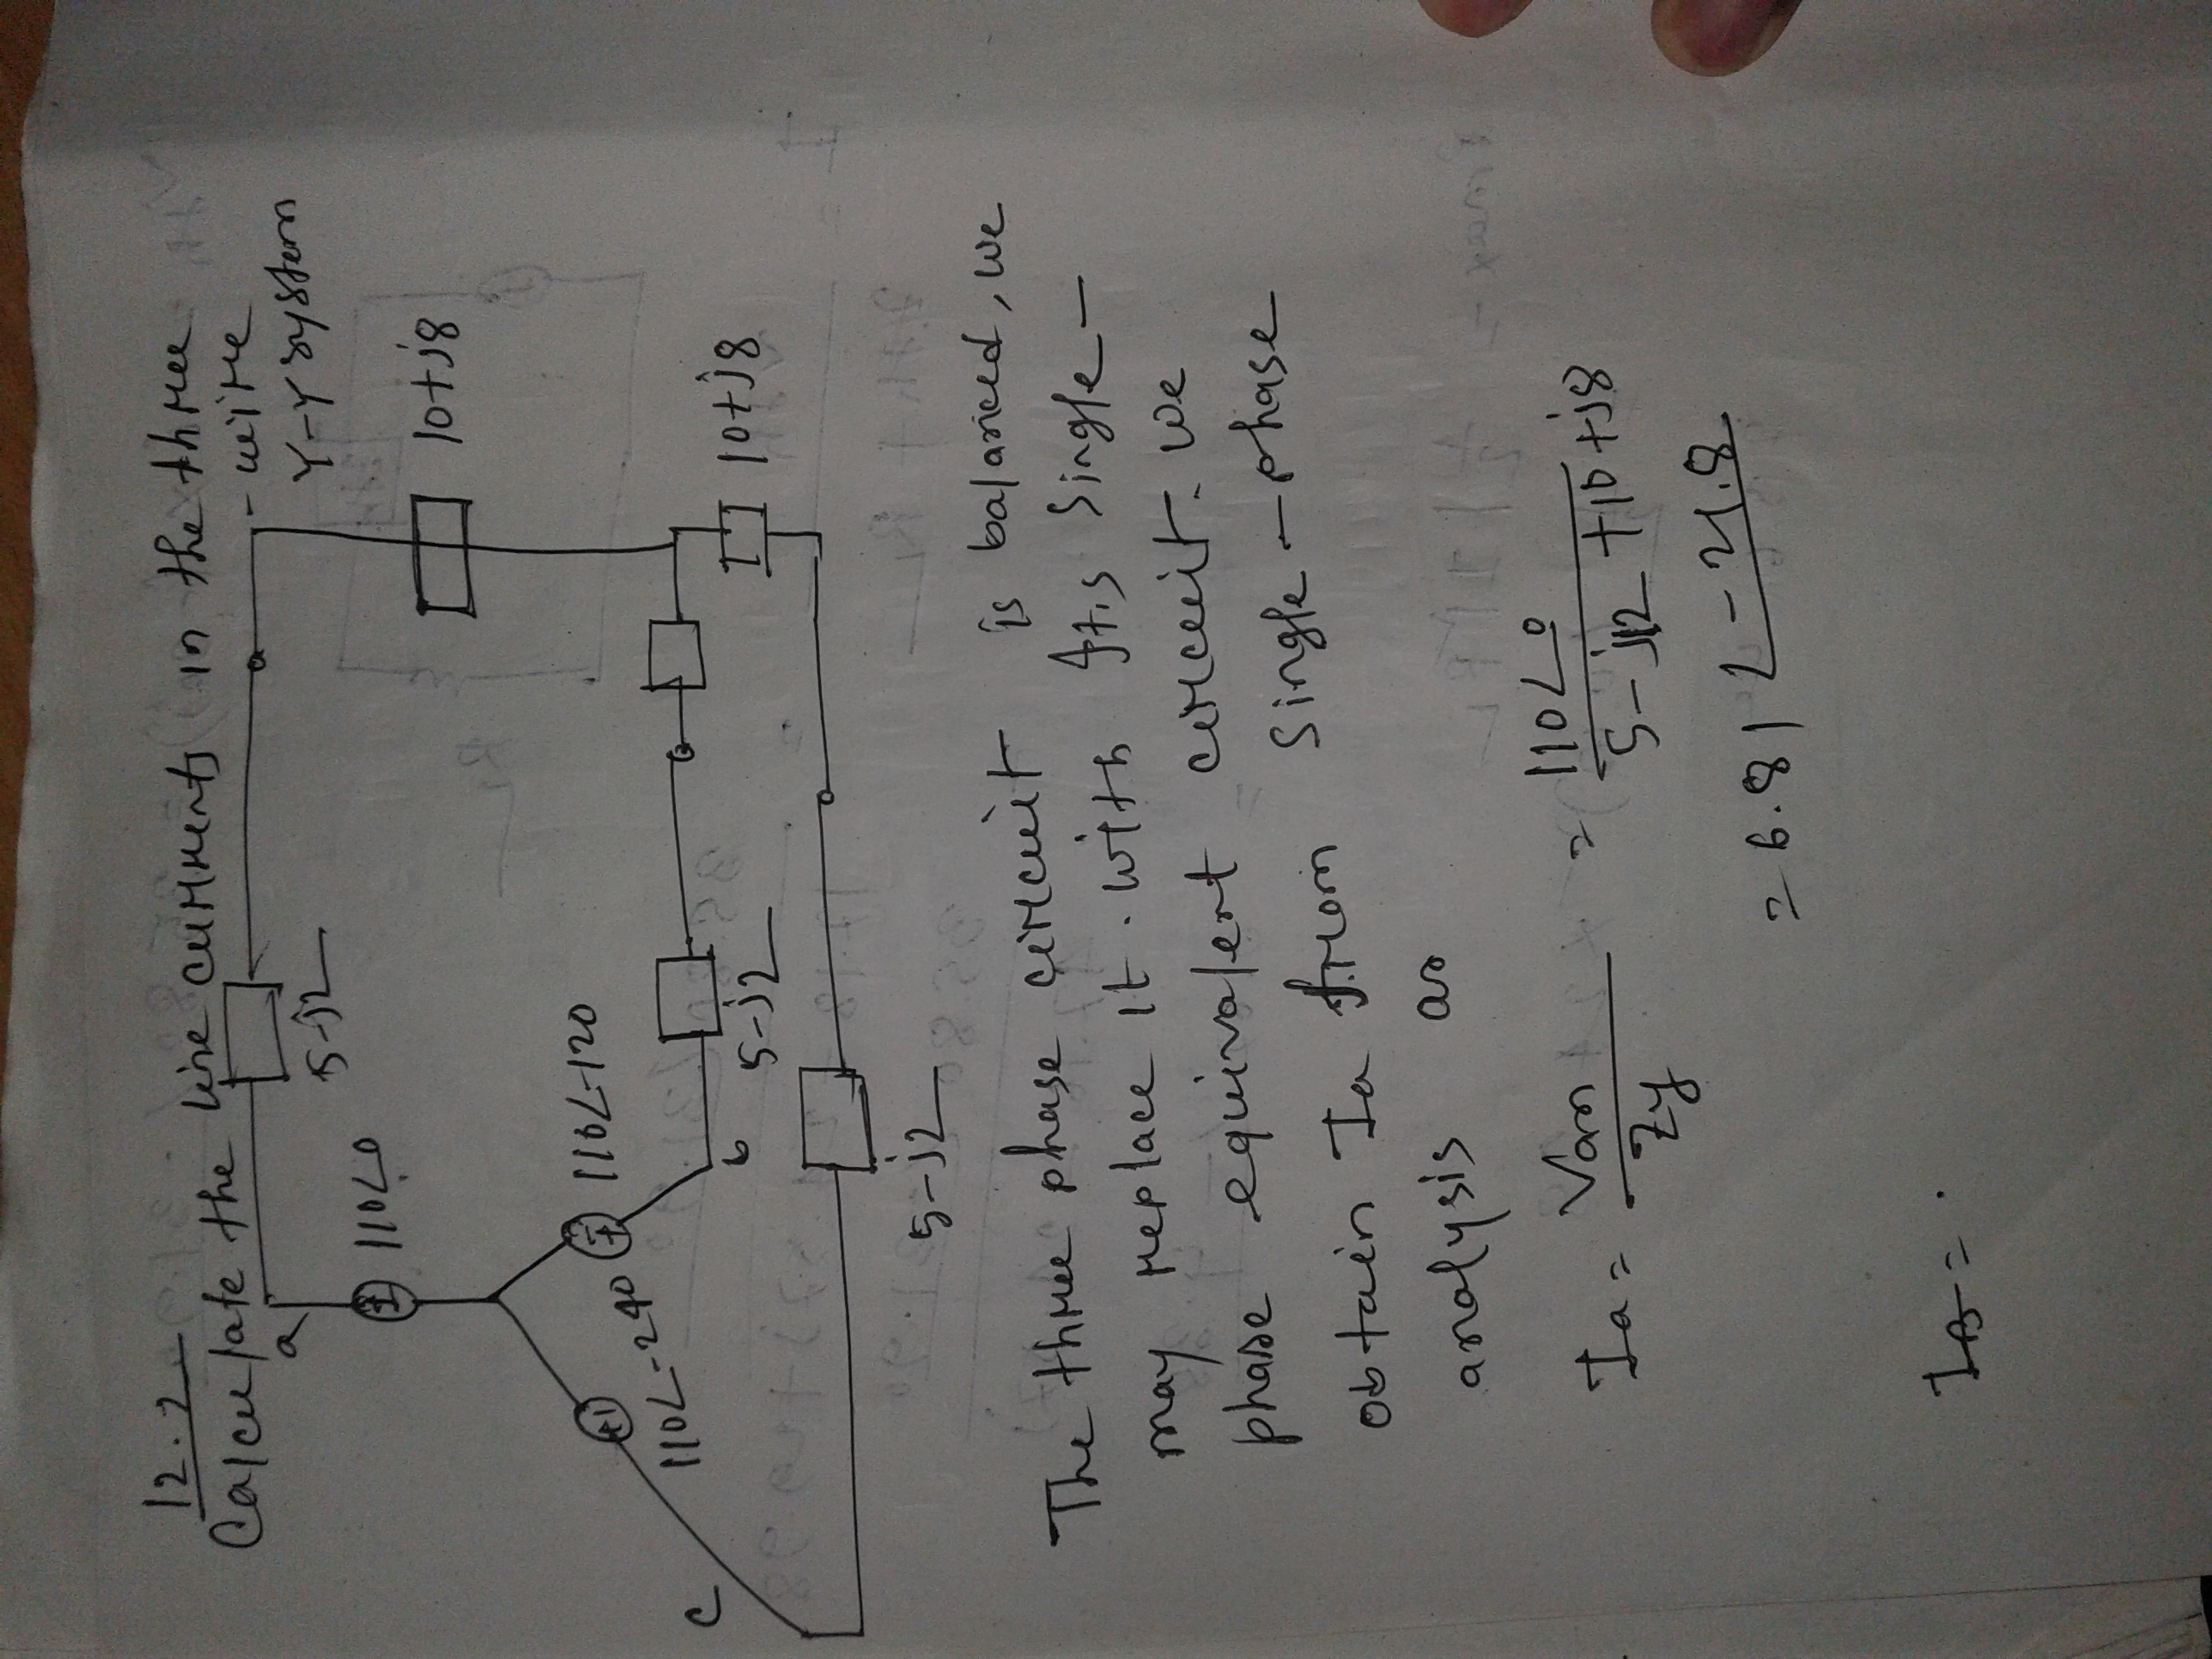 12.2
Calculate the line currents in the three
- wire
Y-Y system
a
5-j2
a
110∠0
10+j8
110∠-120
110∠-240
c
b
5-j2
10+j8
5-j2
The three phase circuit is balanced, we
may replace it. with Its single-
phase equivalent circuit. we
obtain Ia from single-phase
analysis as
Ia = Van/Zy = 110∠0/5-j12+10+j8
= 6.81∠-21.8
IB = .